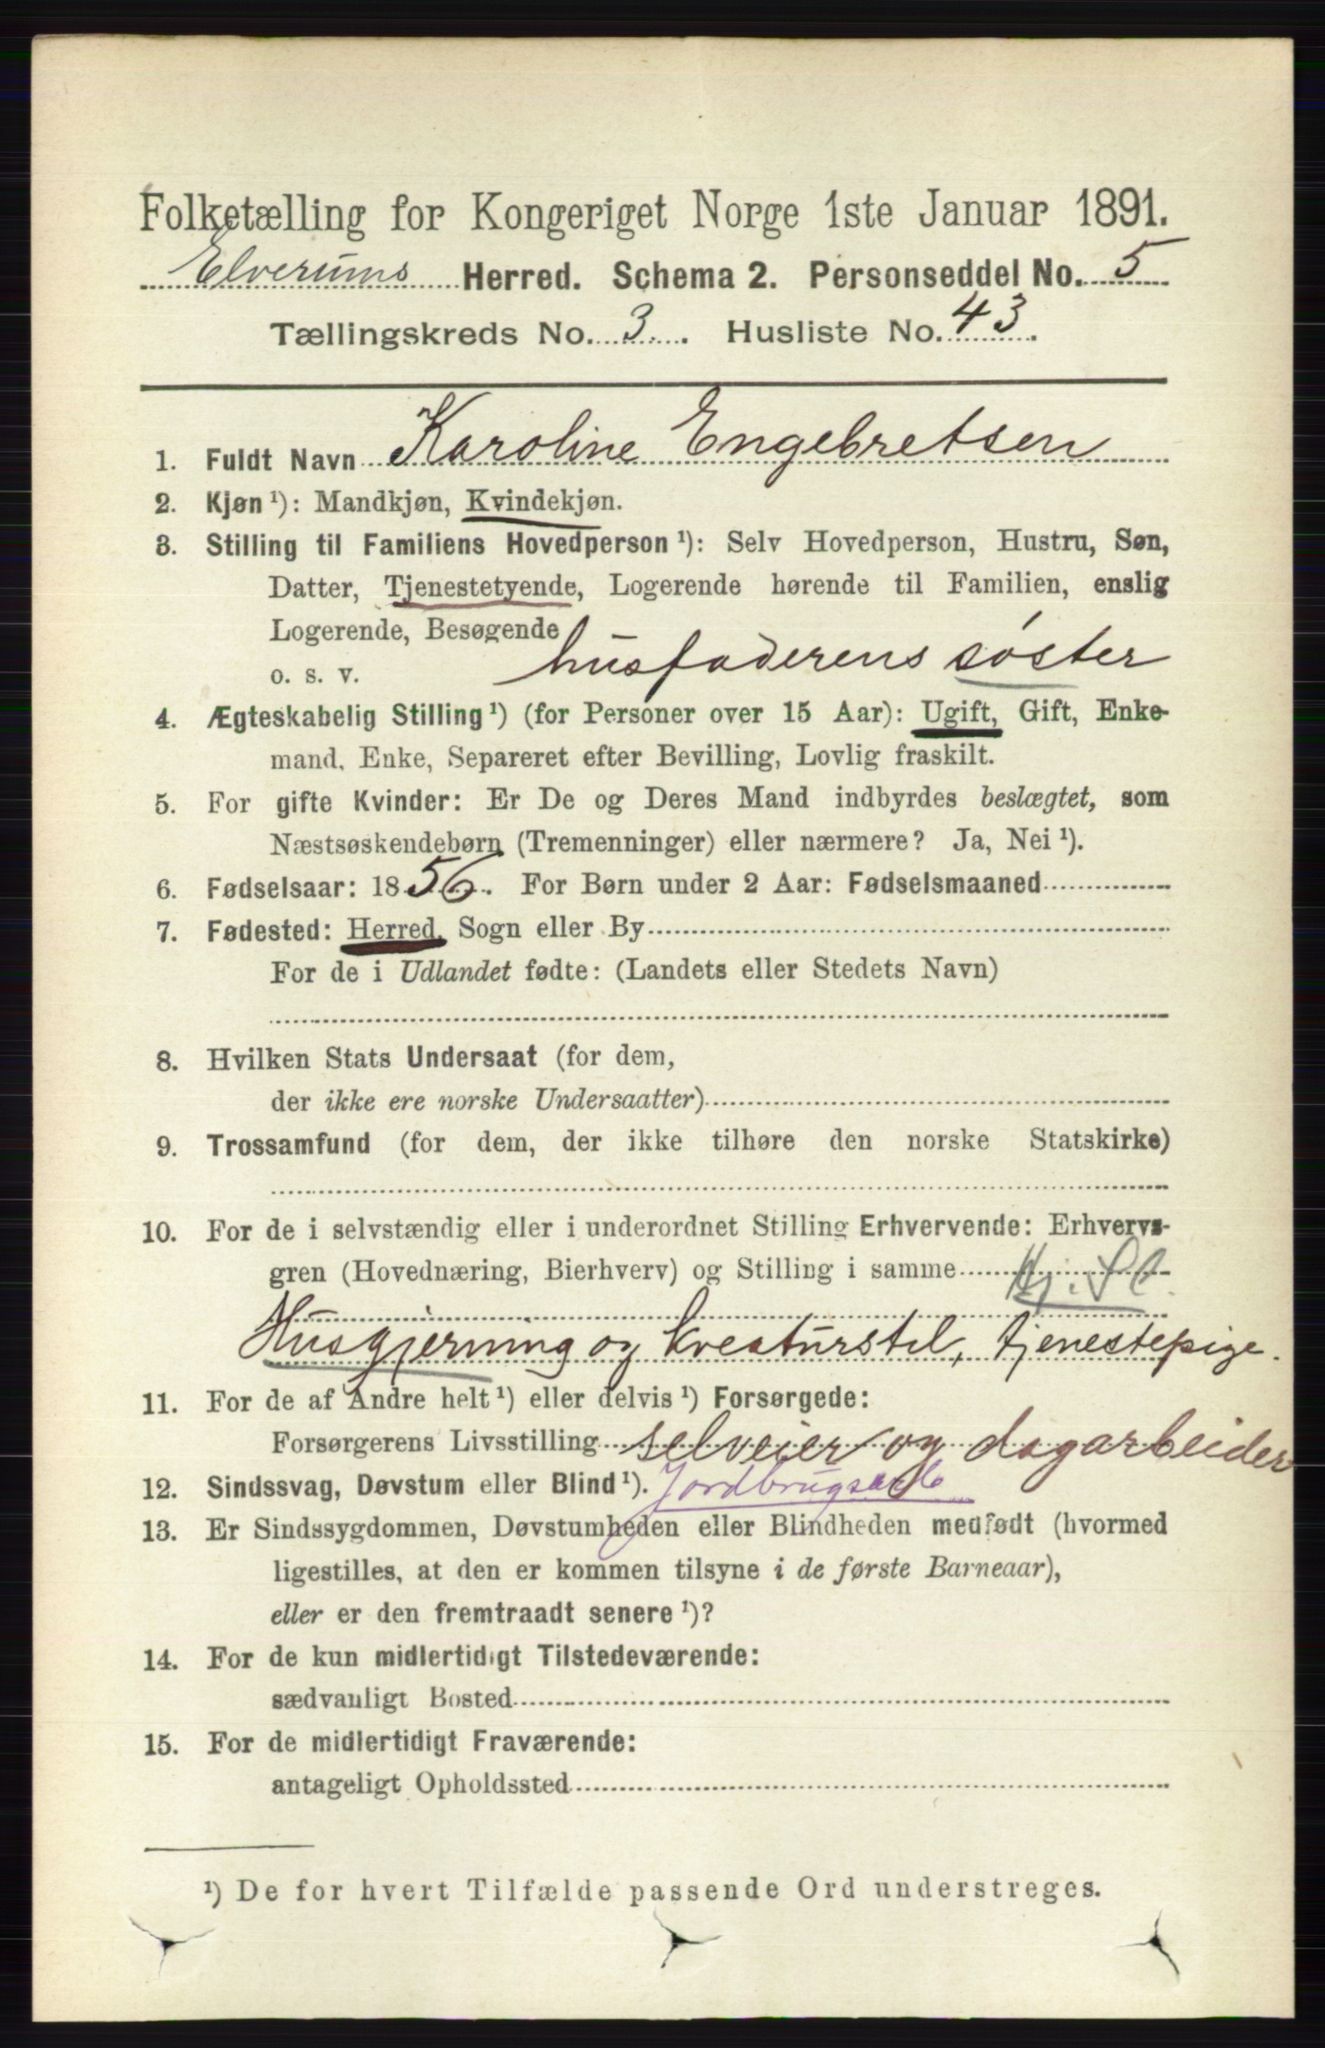 Folketælling for Kongeriget Norge 1ste Januar 1891.
Elverums Herred. Schema 2. Personseddel No. 5
Tællingskreds No. 3. Husliste No. 43.
1. Fuldt Navn Karoline Engebretsen
2. Kjøn ¹): Mandkjøn, Kvindekjøn.
3. Stilling til Familiens Hovedperson ¹): Selv Hovedperson, Hustru, Søn,
Datter, Tjenestetyende, Logerende hørende til Familien, enslig
Logerende, Besøgende
o. s. v. husfaderens søster
4. Ægteskabelig Stilling ¹) (for Personer over 15 Aar): Ugift, Gift, Enke-
mand, Enke, Separeret efter Bevilling, Lovlig fraskilt.
5. For gifte Kvinder: Er De og Deres Mand indbyrdes beslægtet, som
Næstsøskendebørn (Tremenninger) eller nærmere? Ja, Nei ¹).
6. Fødselsaar: 1856. For Børn under 2 Aar: Fødselsmaaned
7. Fødested: Herred, Sogn eller By
For de i Udlandet fødte: (Landets eller Stedets Navn)
8. Hvilken Stats Undersaat (for dem,
der ikke ere norske Undersaatter)
9. Trossamfund (for dem, der ikke tilhøre den norske Statskirke)
10. For de i selvstændig eller i underordnet Stilling Erhvervende: Erhvervs-
gren (Hovednæring, Bierhverv) og Stilling i samme
Husgjerning og kreaturstel, tjenestepige.
11. For de af Andre helt ¹) eller delvis ¹) Forsørgede:
Forsørgerens Livsstilling selveier og dagarbeider
12. Sindssvag, Døvstum eller Blind ¹). Jordbrugsarb
13. Er Sindssygdommen, Døvstumheden eller Blindheden medfødt (hvormed
ligestilles, at den er kommen tilsyne i de første Barneaar),
eller er den fremtraadt senere ¹)?
14. For de kun midlertidigt Tilstedeværende:
sædvanligt Bosted
15. For de midlertidigt Fraværende:
antageligt Opholdssted
¹) De for hvert Tilfælde passende Ord understreges.